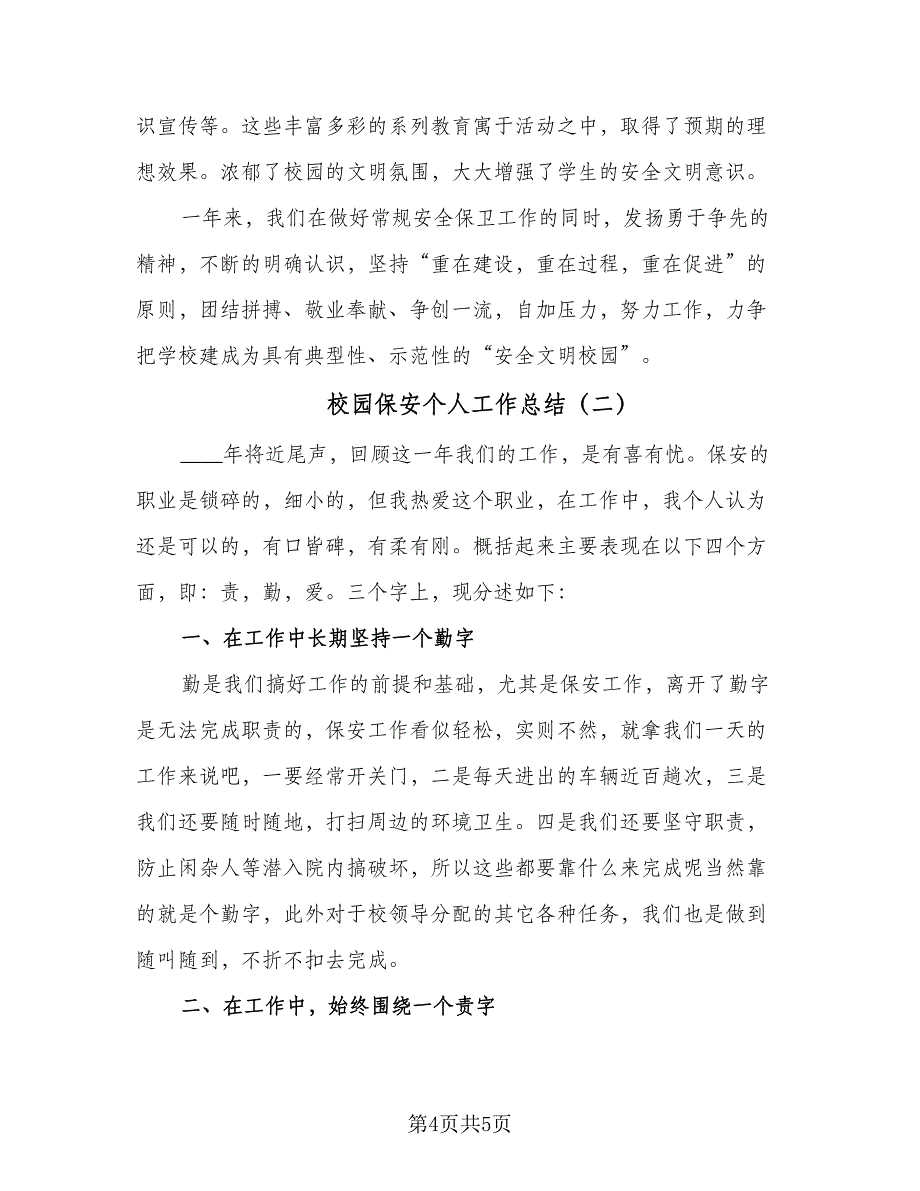 识宣传等。这些丰富多彩的系列教育寓于活动之中，取得了预期的理
想效果。浓郁了校园的文明氛围，大大增强了学生的安全文明意识。
一年来，我们在做好常规安全保卫工作的同时，发扬勇于争先的
精神，不断的明确认识，坚持“重在建设，重在过程，重在促进”的
原则，团结拼搏、敬业奉献、争创一流，自加压力，努力工作，力争
把学校建成为具有典型性、示范性的“安全文明校园”。
校园保安个人工作总结（二）
____年将近尾声，回顾这一年我们的工作，是有喜有忧。保安的
职业是锁碎的，细小的，但我热爱这个职业，在工作中，我个人认为
还是可以的，有口皆碑，有柔有刚。概括起来主要表现在以下四个方
面，即：责，勤，爱。三个字上，现分述如下：
一、在工作中长期坚持一个勤字
勤是我们搞好工作的前提和基础，尤其是保安工作，离开了勤字
是无法完成职责的，保安工作看似轻松，实则不然，就拿我们一天的
工作来说吧，一要经常开关门，二是每天进出的车辆近百趟次，三是
我们还要随时随地，打扫周边的环境卫生。四是我们还要坚守职责，
防止闲杂人等潜入院内搞破坏，所以这些都要靠什么来完成呢当然靠
的就是个勤字，此外对于校领导分配的其它各种任务，我们也是做到
随叫随到，不折不扣去完成。
二、在工作中，始终围绕一个责字
第4页共5页